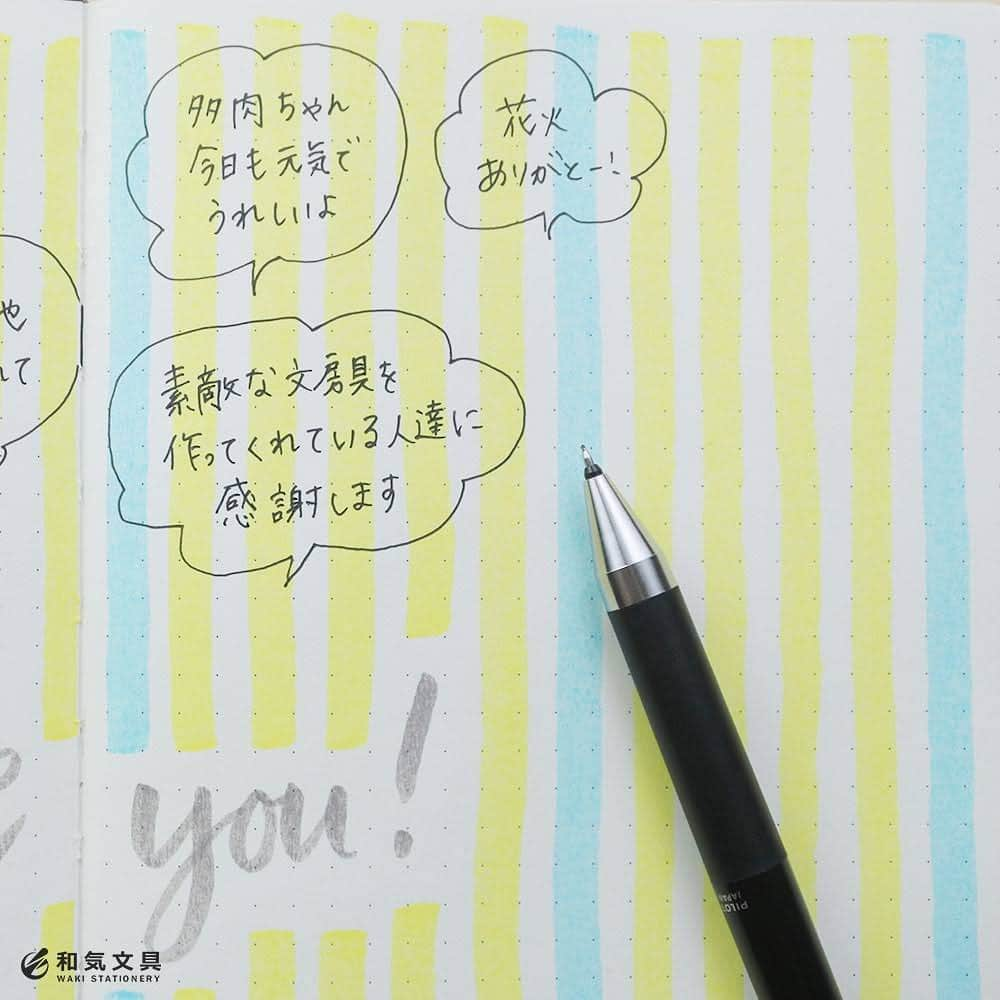 多肉ちゃん
今日も元気で
うれしいよ
花火
ありがとー!
や
れて
素敵な文房具を
作ってくれている人達に
感謝します
you!
PILOT
JAPAN
和気文具
WAKI STATIONERY